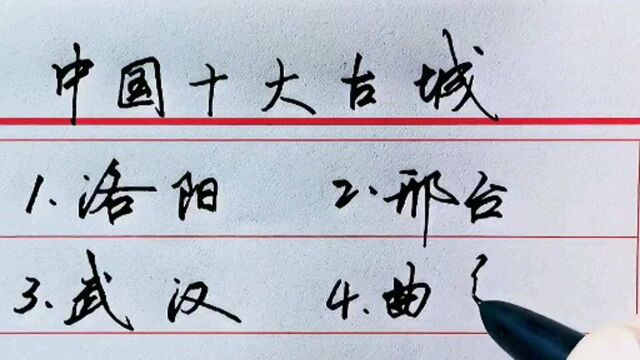 中国十大古城
1.洛阳 2.邢台
3.武汉 4.曲